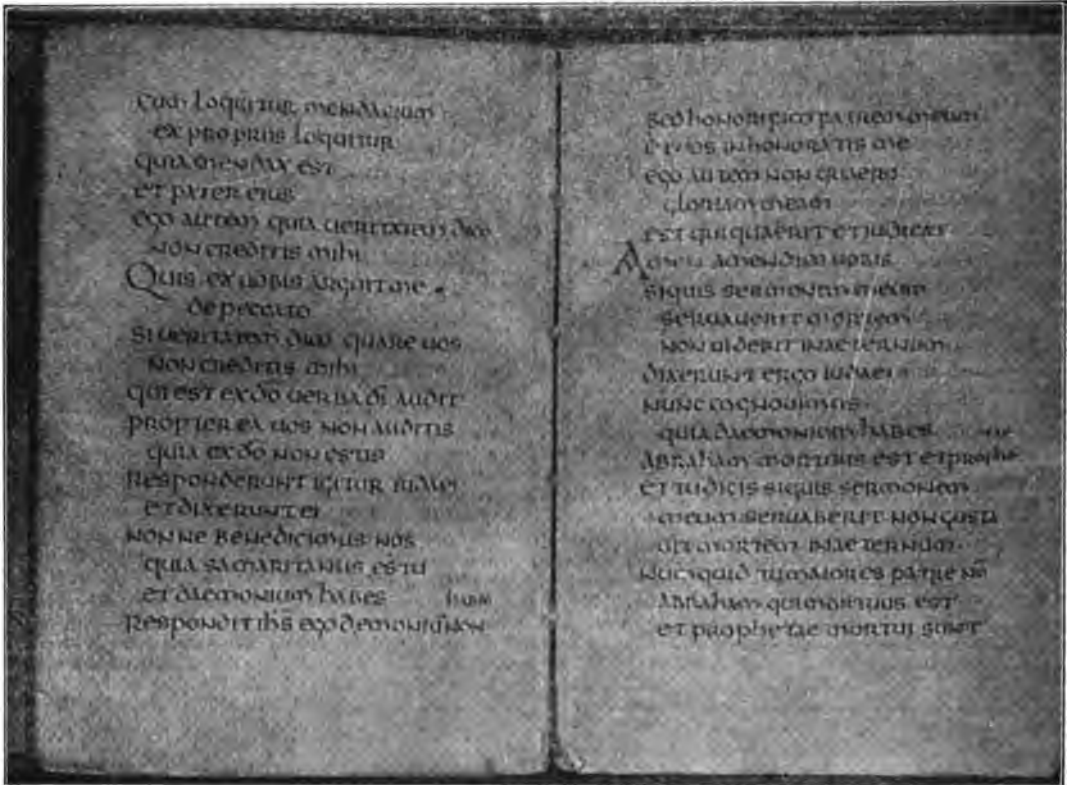 cum loquitur mendacium
ex propriis loquitur
quia mendax est
et pater eius
ego autem quia ueritatem dico
non creditis mihi
Quis ex uobis arguit me
de peccato
si ueritatem dico quare uos
non creditis mihi
qui est ex dō uerba dī audit
propter ea uos non auditis
quia ex dō non estis
Responderunt igitur iudaei
et dixerunt ei
nonne bene dicimus nos
quia samaritanus es tu
et daemonium habes habeo
Respondit ihs ego demoniū non
sed honorifico patrem meum
et uos inhonoratis me
ego autem non quaero
gloriam meam
est qui quaerit et iudicat
Amen amen dico uobis
siquis sermonem meum
seruauerit mortem
non uidebit in aeternum
dixerunt ergo iudaei
nunc cognouimus
quia daemonium habes tae
Abraham mortuus est et prophe
et tu dicis siquis sermonem
meum seruauerit non gusta
bit mortem in aeternum
Numquid tu maior es patre nō
Abraham qui mortuus est
et prophetae mortui sunt